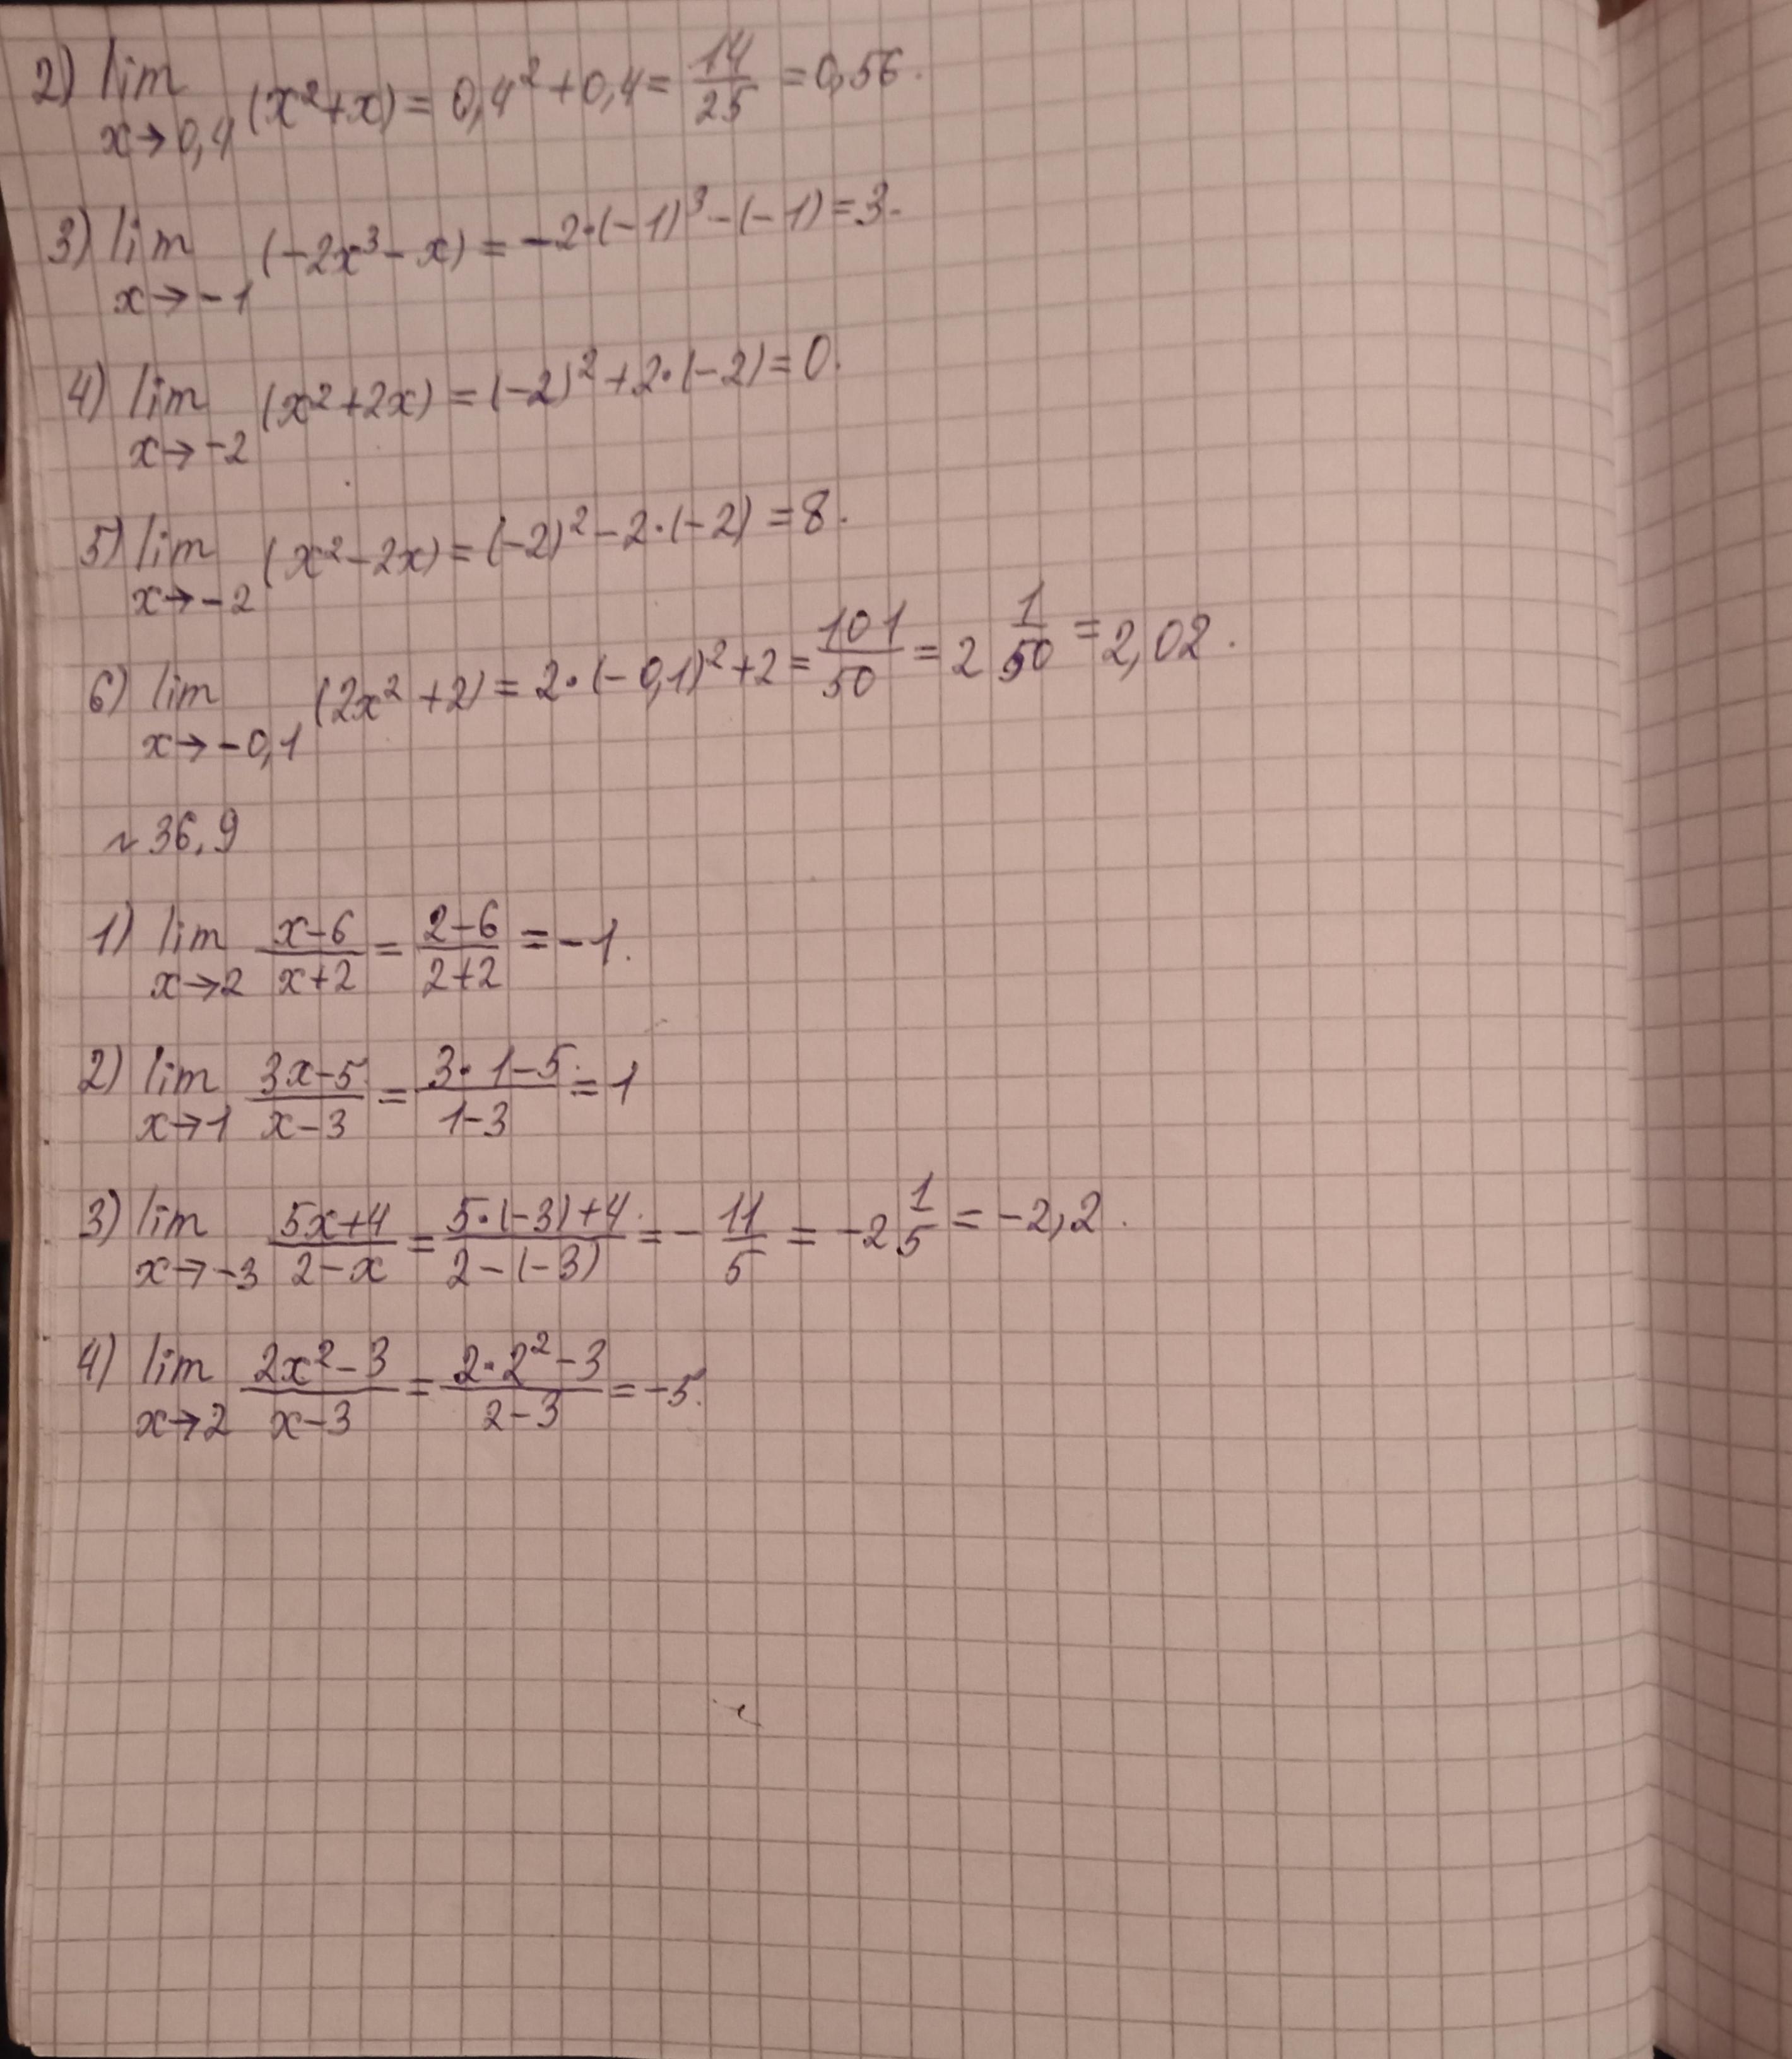 2) lim x→0,4 (x²+x) = 0,4²+0,4 = 14/25 = 0,56.
3) lim x→-1 (-2x³-x) = -2·(-1)³-(-1) = 3.
4) lim x→-2 (x²+2x) = (-2)²+2·(-2) = 0.
5) lim x→-2 (x²-2x) = (-2)²-2·(-2) = 8.
6) lim x→-0,1 (2x²+2) = 2·(-0,1)²+2 = 101/50 = 2 1/50 = 2,02.
~36.9
1) lim x→2 x-6/x+2 = 2-6/2+2 = -1.
2) lim x→1 3x-5/x-3 = 3·1-5/1-3 = 1
3) lim x→-3 5x+4/2-x = 5·(-3)+4/2-(-3) = -11/5 = -2 1/5 = -2,2.
4) lim x→2 2x²-3/x-3 = 2·2²-3/2-3 = -5.